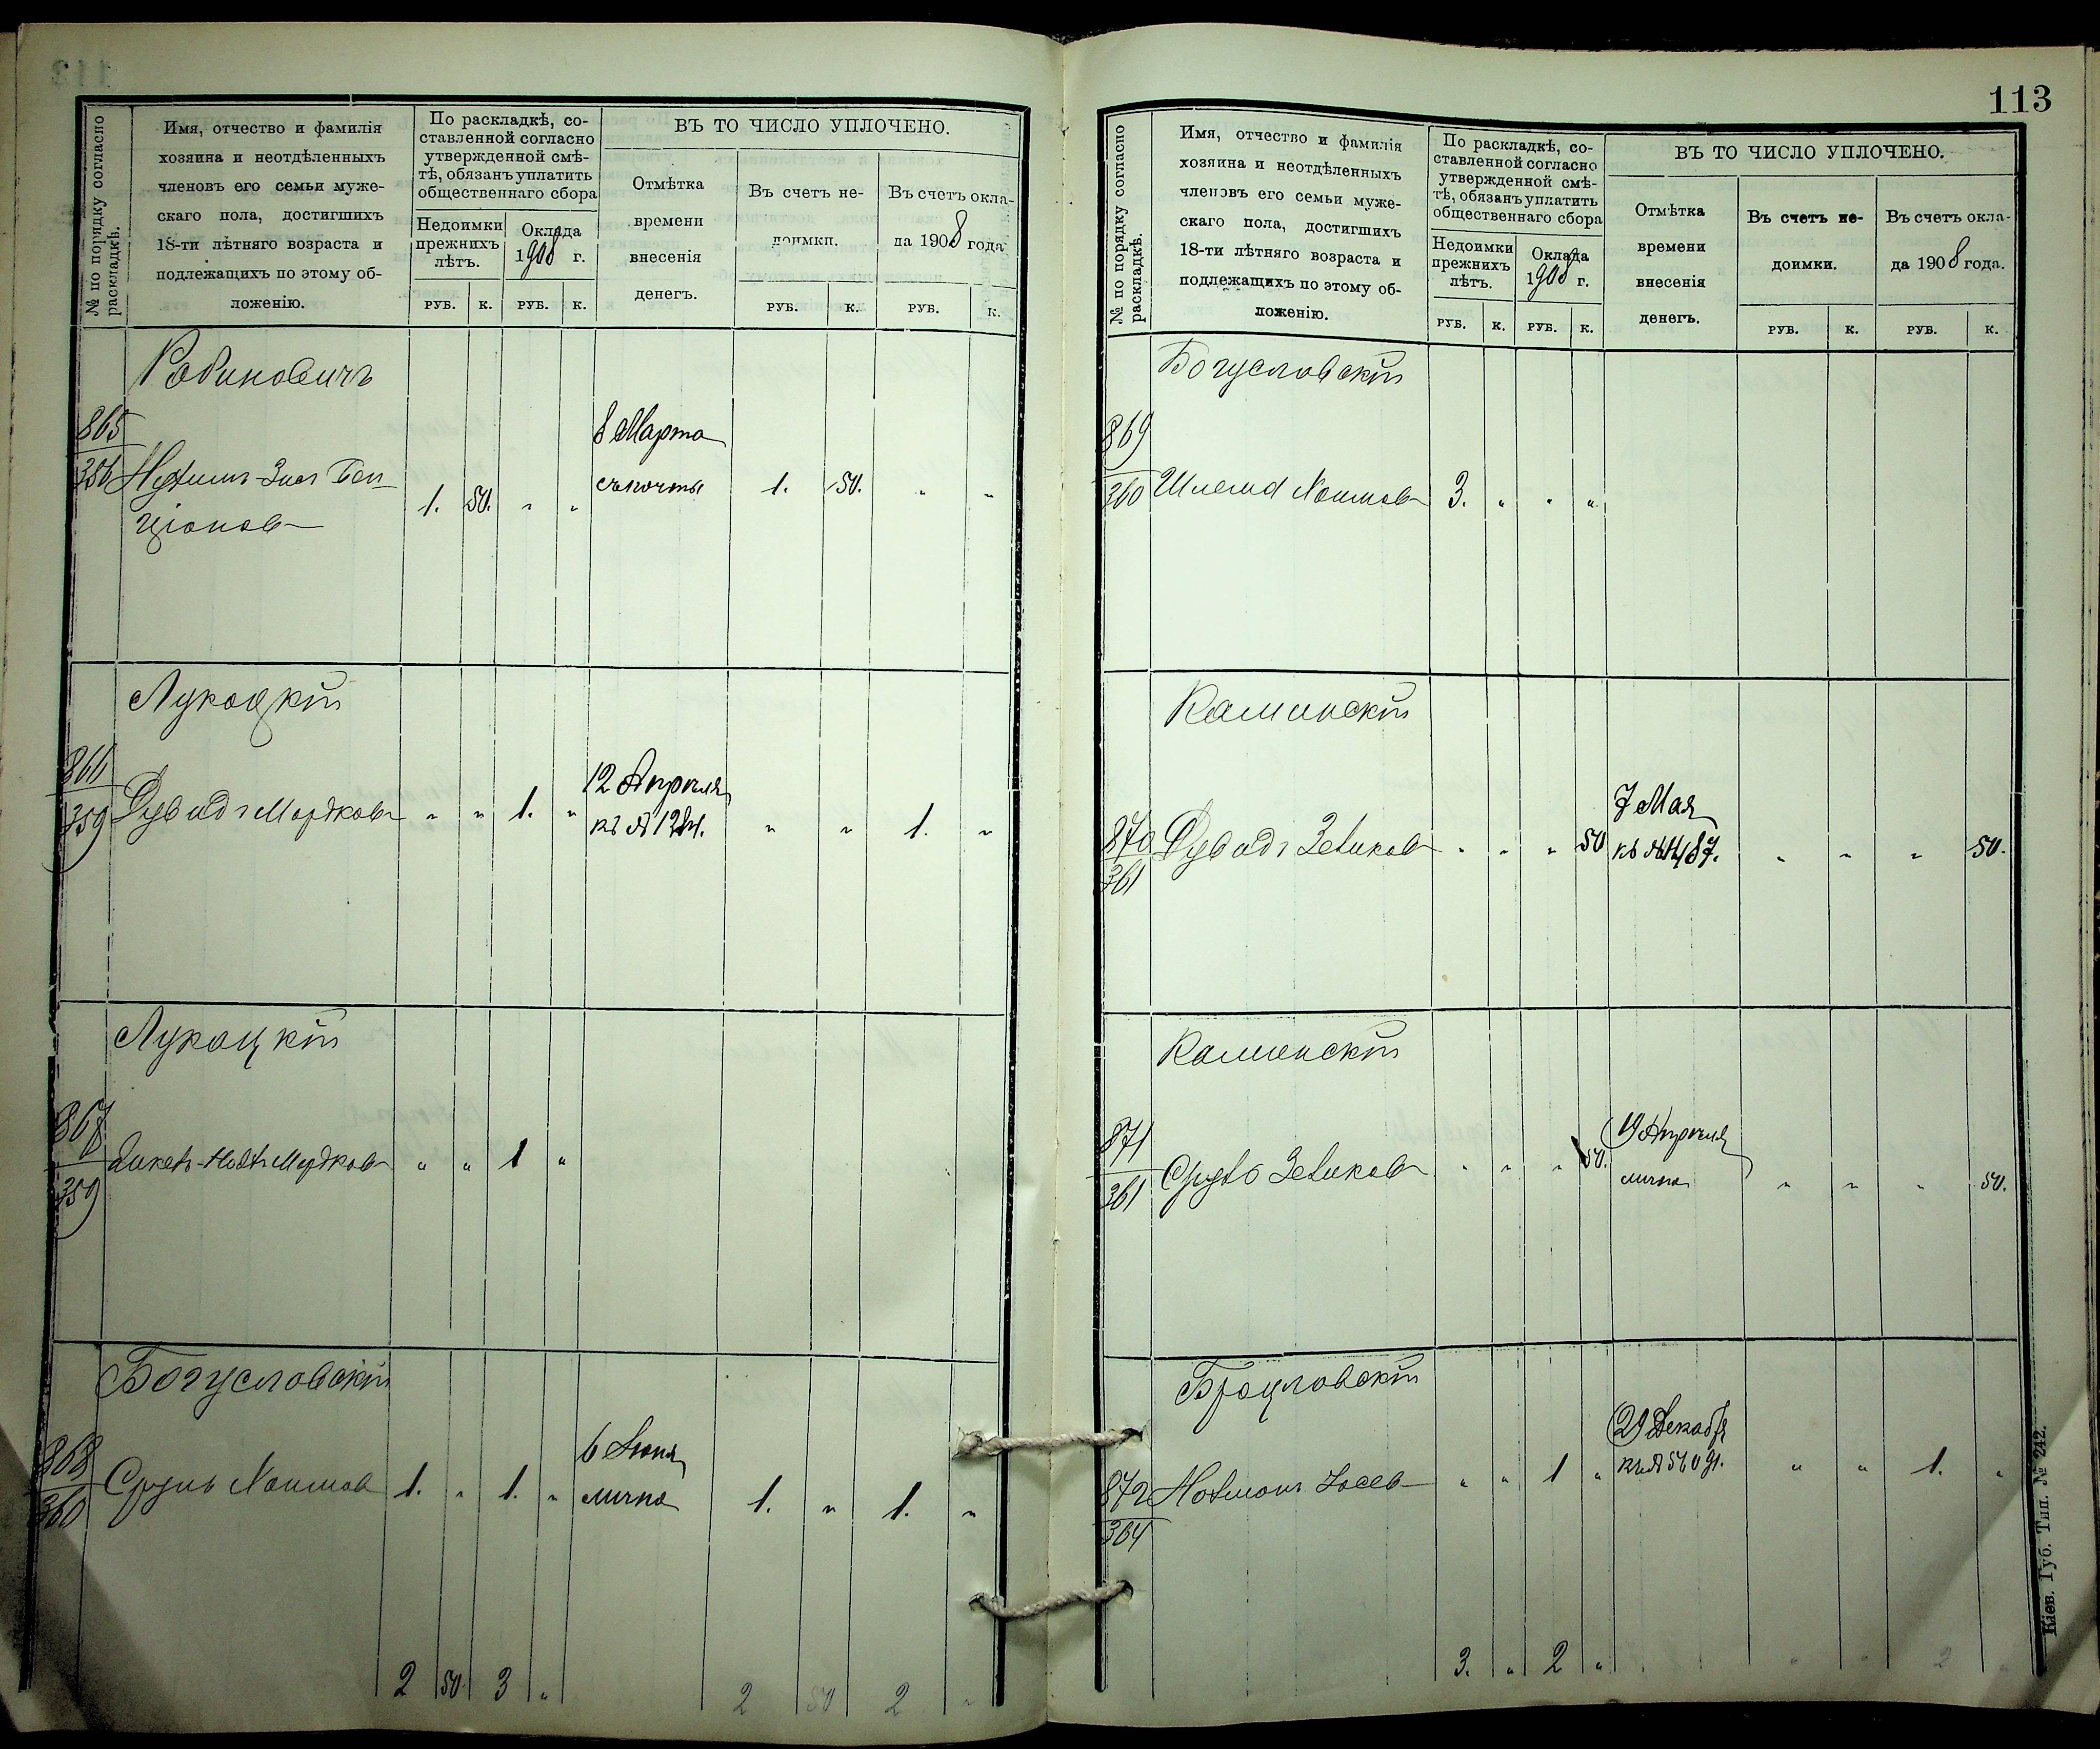 113
№ по порядку согласно раскладкѣ.
Имя, отчество и фамилія
хозяина и неотдѣленныхъ
членовъ его семьи муже-
скаго пола, достигшихъ
18-ти лѣтняго возраста и
подлежащихъ по этому об-
ложенію.
По раскладкѣ, со-
ставленной согласно
утвержденной смѣ-
тѣ, обязанъ уплатить
общественнаго сбора
Недоимки
прежнихъ
лѣтъ.
Оклада
1908 г.
РУБ. К. РУБ. К.
ВЪ ТО ЧИСЛО УПЛОЧЕНО.
Отмѣтка
времени
внесенія
денегъ.
Въ счетъ не-
доимки.
Въ счетъ окла-
да 1908 года
РУБ. К. РУБ. К.
Рабиновичъ
865
356
Бен-
ціонов
1. 50. " "
8 Марта
съ почты
1. 50. " "
Лукацкій
866
359
Дувидъ Мордков
" " 1. "
12 Апрѣля
къ №
" " 1. "
Лукацкій
867
359
Мордков
" " 1 "
Богуславскій
868
360
Сруль Хаимов
1. " 1. "
6 Июня
лично
1. " 1. "
2 50 3 "
2 50 2 "
113
№ по порядку согласно раскладкѣ.
Имя, отчество и фамилія
хозяина и неотдѣленныхъ
членовъ его семьи муже-
скаго пола, достигшихъ
18-ти лѣтняго возраста и
подлежащихъ по этому об-
ложенію.
По раскладкѣ, со-
ставленной согласно
утвержденной смѣ-
тѣ, обязанъ уплатить
общественнаго сбора
Недоимки
прежнихъ
лѣтъ.
Оклада
1908 г.
РУБ. К. РУБ. К.
ВЪ ТО ЧИСЛО УПЛОЧЕНО.
Отмѣтка
времени
внесенія
денегъ.
Въ счетъ не-
доимки.
Въ счетъ окла-
да 1908 года.
РУБ. К. РУБ. К.
Богуславскій
869
360
Шлема Хаимов
3. " " "
Каминскій
870
361
Дувидъ Зеликов
" " " 50
7 Мая
къ №
" " " 50.
Каминскій
871
361
Зеликов
" " " 50.
19 Апрѣля
лично
" " " 50.
Брацлавскій
872
364
Нахманъ Іосев
" " 1 "
29 Декабря
къ №
" " 1. "
3. " 2 "
" " 2 "
Кіев. Губ. Тип. № 242.